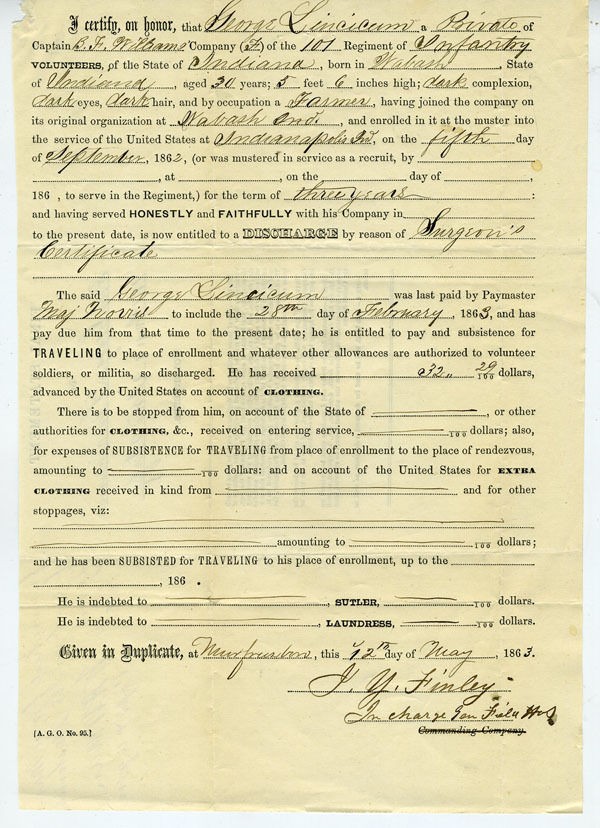 I certify, on honor, that George Lincicum a Private of
Captain B. F. Williams' Company (F) of the 101 Regiment of Infantry
VOLUNTEERS, of the State of Indiana, born in Wabash, State
of Indiana, aged 30 years; 5 feet 6 inches high; dark complexion,
dark eyes, dark hair, and by occupation a Farmer, having joined the company on
its original organization at Wabash Ind., and enrolled in it at the muster into
the service of the United States at Indianapolis Ind, on the fifth day
of September, 1862, (or was mustered in service as a recruit, by
, at , on the day of ,
186 , to serve in the Regiment,) for the term of three years :
and having served HONESTLY and FAITHFULLY with his Company in
to the present date, is now entitled to a DISCHARGE by reason of Surgeon's
Certificate
The said George Lincicum was last paid by Paymaster
Maj Norris to include the 28th day of February, 1863, and has
pay due him from that time to the present date; he is entitled to pay and subsistence for
TRAVELING to place of enrollment and whatever other allowances are authorized to volunteer
soldiers, or militia, so discharged. He has received 32,, 29/100 dollars,
advanced by the United States on account of CLOTHING.
There is to be stopped from him, on account of the State of , or other
authorities for CLOTHING, &c., received on entering service, /100 dollars; also,
for expenses of SUBSISTENCE for TRAVELING from place of enrollment to the place of rendezvous,
amounting to /100 dollars: and on account of the United States for EXTRA
CLOTHING received in kind from and for other
stoppages, viz:
amounting to /100 dollars;
and he has been SUBSISTED for TRAVELING to his place of enrollment, up to the
, 186 .
He is indebted to , SUTLER, /100 dollars.
He is indebted to , LAUNDRESS, /100 dollars.
Given in Duplicate, at , this 12th day of May, 1863.
J. Y. Finley
In charge Field
Commanding Company.
[A. G. O. No. 95.]